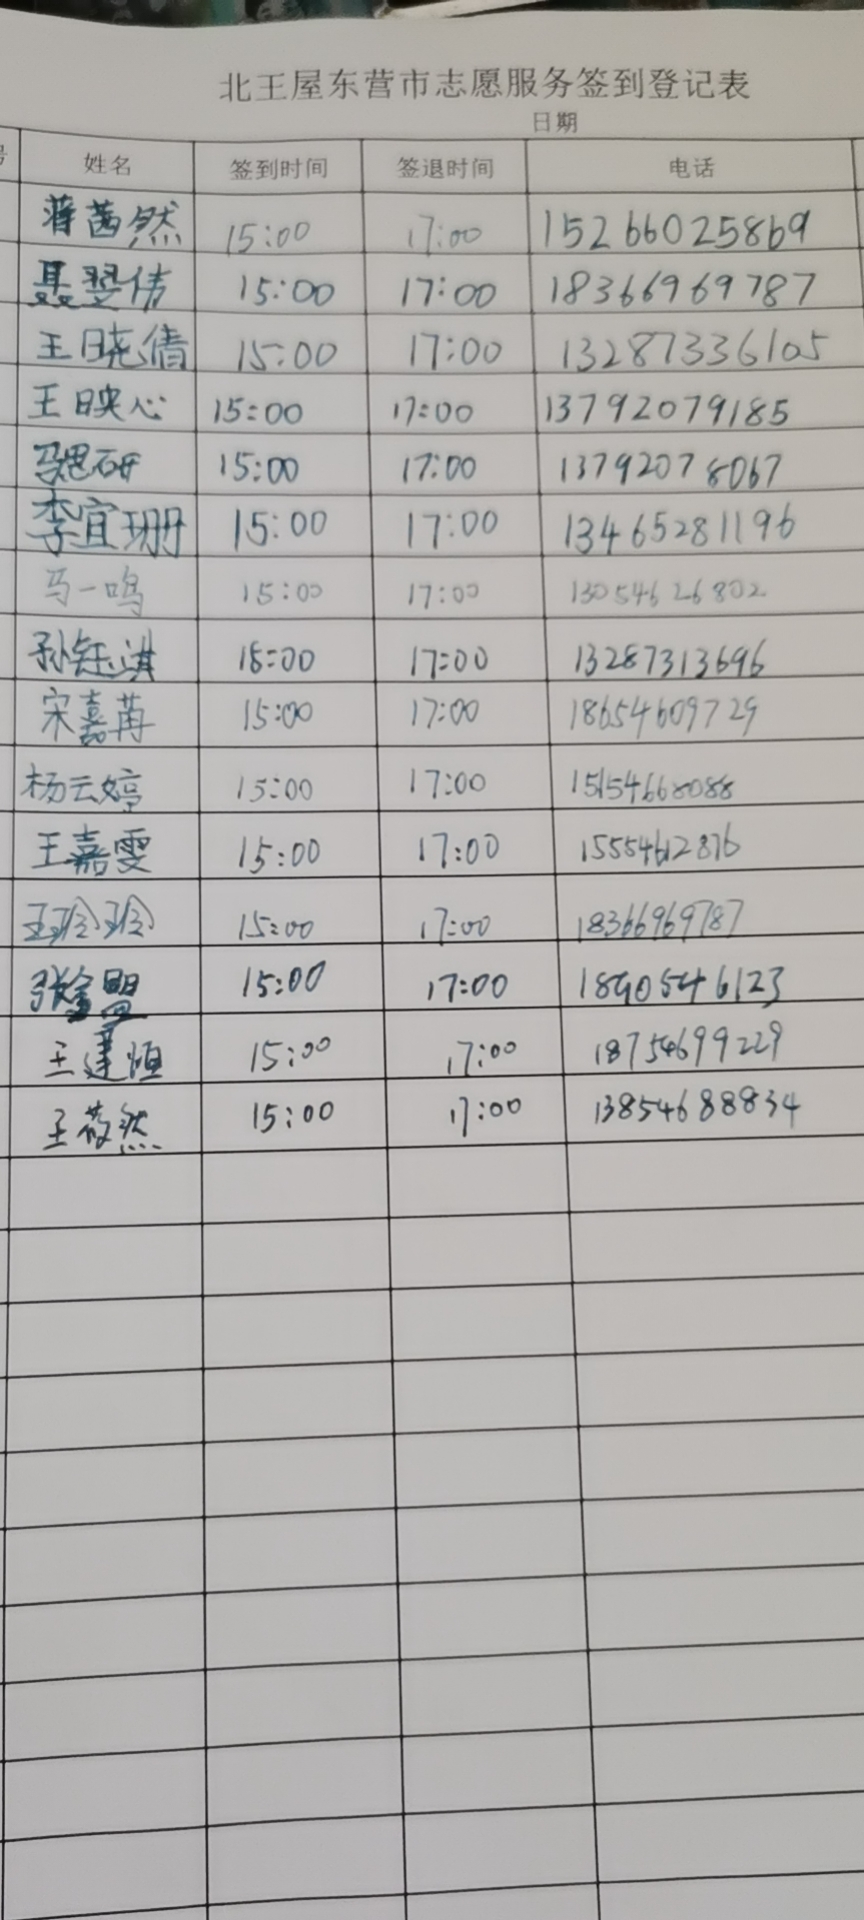 北王屋东营市志愿服务签到登记表
日期
号 姓名 签到时间 签退时间 电话
蒋茜然 15:00 17:00 15266025869
聂翌倩 15:00 17:00 18366969787
王晓倩 15:00 17:00 13287336105
王映心 15:00 17:00 13792079185
马思研 15:00 17:00 13792078067
李宜珊 15:00 17:00 13465281196
马一鸣 15:00 17:00 13054626802
孙钰淇 15:00 17:00 13287313696
宋嘉苒 15:00 17:00 18654609729
杨云婷 15:00 17:00 15154668088
王嘉雯 15:00 17:00 15554612876
王玲玲 15:00 17:00 18366969787
张金盟 15:00 17:00 18905446123
王 恒 15:00 17:00 18754699229
王薇然 15:00 17:00 13854688834